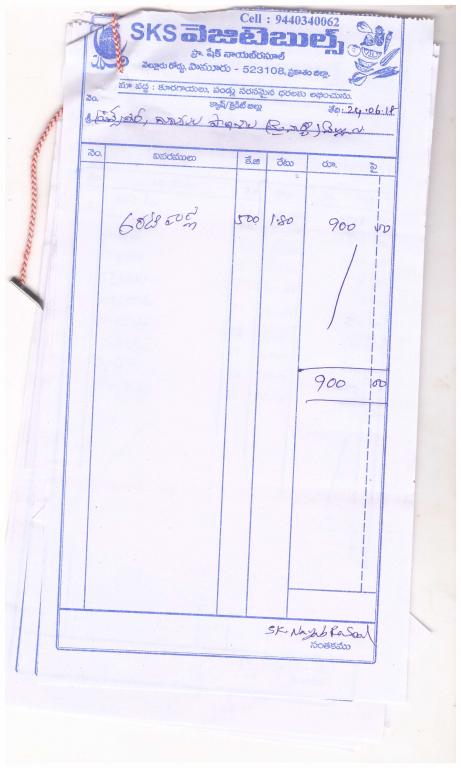 Cell : 9440340062
SKS వెజిటెబుల్స్
ప్రొ. షేక్ నాయబ్‌రసూల్
వెల్లూరు రోడ్డు, పామూరు - 523108, ప్రకాశం జిల్లా.
మా వద్ద : కూరగాయలు, పండ్లు సరసమైన ధరలకు లభించును.
క్యాష్/క్రెడిట్ బిల్లు
నెం. తేది: 24.06.18
శ్రీ
నెం. వివరములు కే.జి రేటు రూ. పై
500 1.80 900 00
900 00
S.K. Nayab Rasool
సంతకము